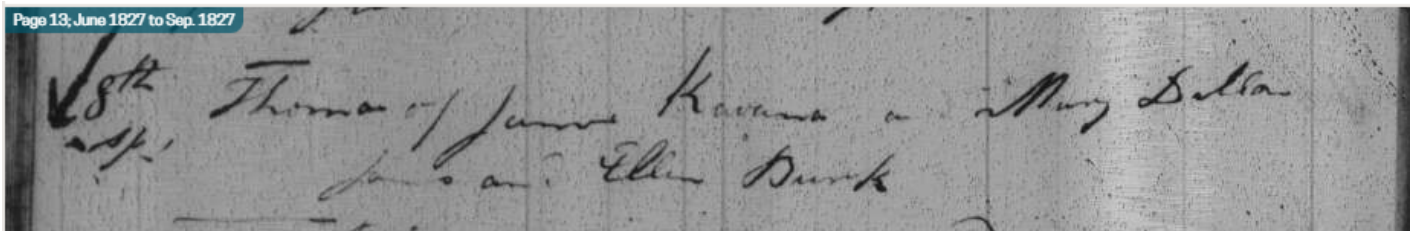 Page 13; June 1827 to Sep. 1827
8th Thomas of James Kavana a Mary Dalton
sp. James and Ellen Burk